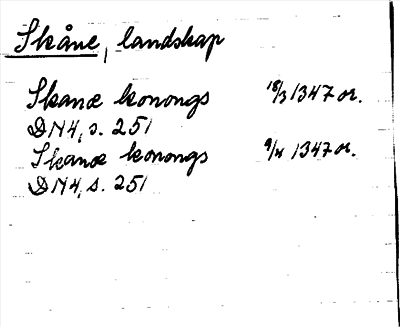 Skåne, landskap
Skanæ konongs 18/3 1347 or.
DN4, s. 251
Skanæ konongs 9/4 1347 or.
DN4, s. 251